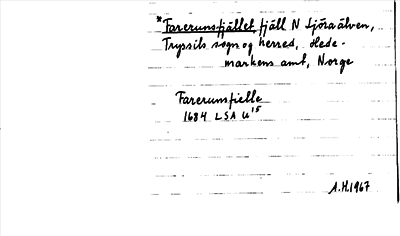 *Farerunsfjället fjäll N Ljöraälven,
Tryssils sogn og herred, Hede-
markens amt, Norge
Farerunsfielle
1684 LSA U 15
A.H.1967